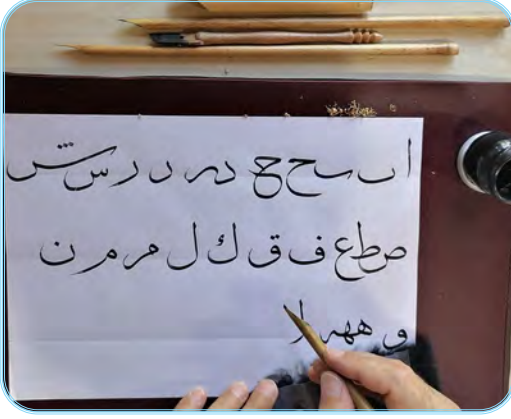 ا ٮ ح ح د ر د ر س ش
ص ط ع ف ق ك ل م م ن
و هه لا